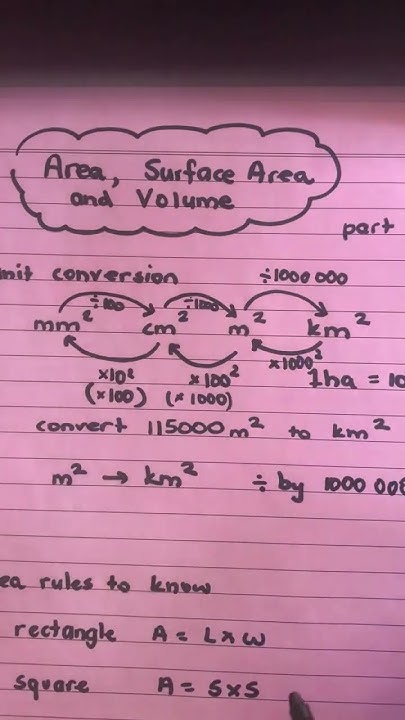 Area, Surface Area
and Volume
part
nit conversion ÷1000 000
÷100 ÷1000
mm² cm² m² km²
×10² ×100² ×1000²
(×100) (×1000) 1ha = 10
convert 115000m² to km²
m² → km² ÷ by 1000 000
ea rules to know
rectangle A = L×W
square A = S×S